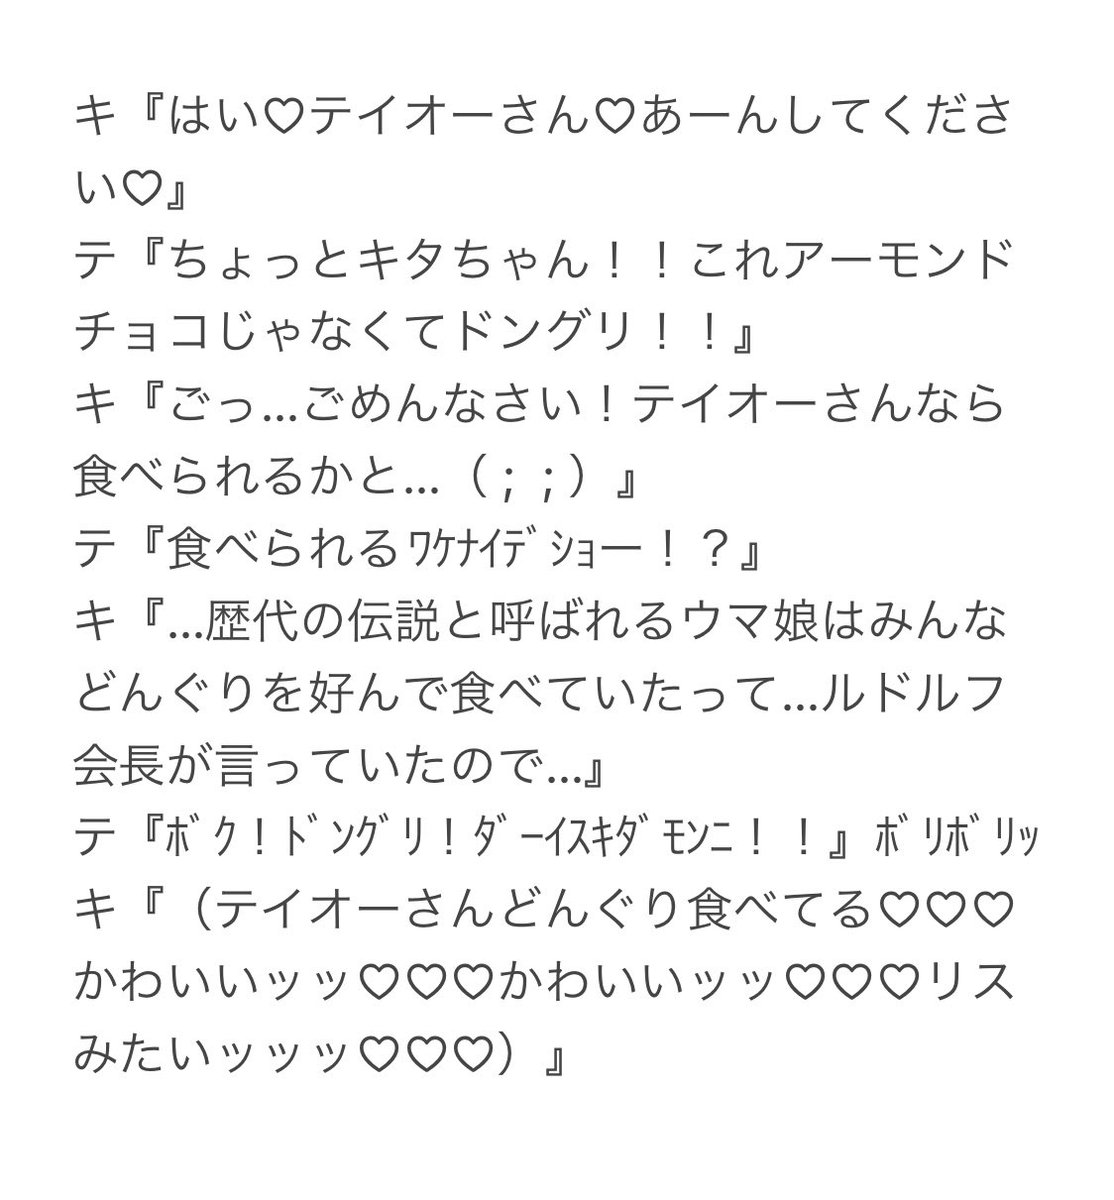 キ『はい♡テイオーさん♡あーんしてくださ
い♡』
テ『ちょっとキタちゃん！！これアーモンド
チョコじゃなくてドングリ！！』
キ『ごっ…ごめんなさい！テイオーさんなら
食べられるかと…（；；）』
テ『食べられるﾜｹﾅｲﾃﾞｼｮー！？』
キ『…歴代の伝説と呼ばれるウマ娘はみんな
どんぐりを好んで食べていたって…ルドルフ
会長が言っていたので…』
テ『ﾎﾞｸ！ﾄﾞﾝｸﾞﾘ！ﾀﾞｰｲｽｷﾀﾞﾓﾝﾆ！！』ﾎﾞﾘﾎﾞﾘｯ
キ『（テイオーさんどんぐり食べてる♡♡♡
かわいいッッ♡♡♡かわいいッッ♡♡♡リス
みたいッッッ♡♡♡）』